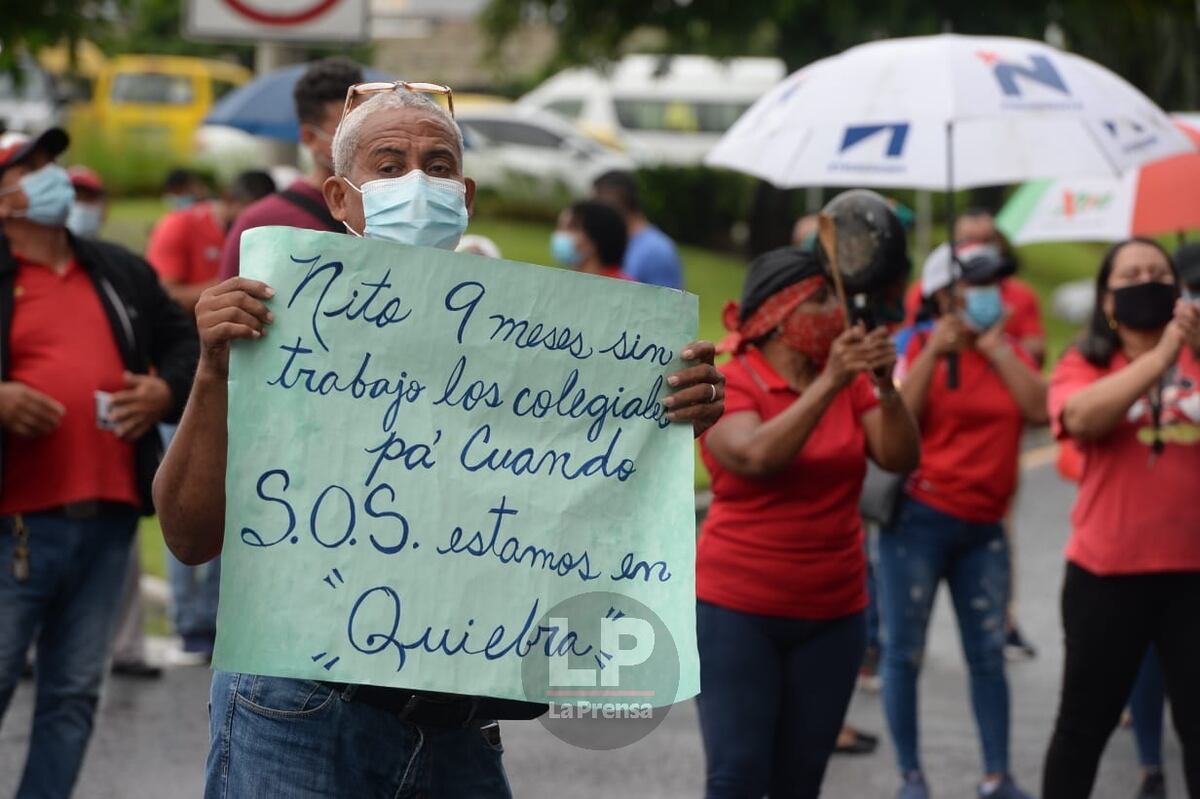 Nito 9 meses sin
trabajo los colegiales
pa' Cuando
S.O.S. estamos en
"Quiebra"
LP
LaPrensa